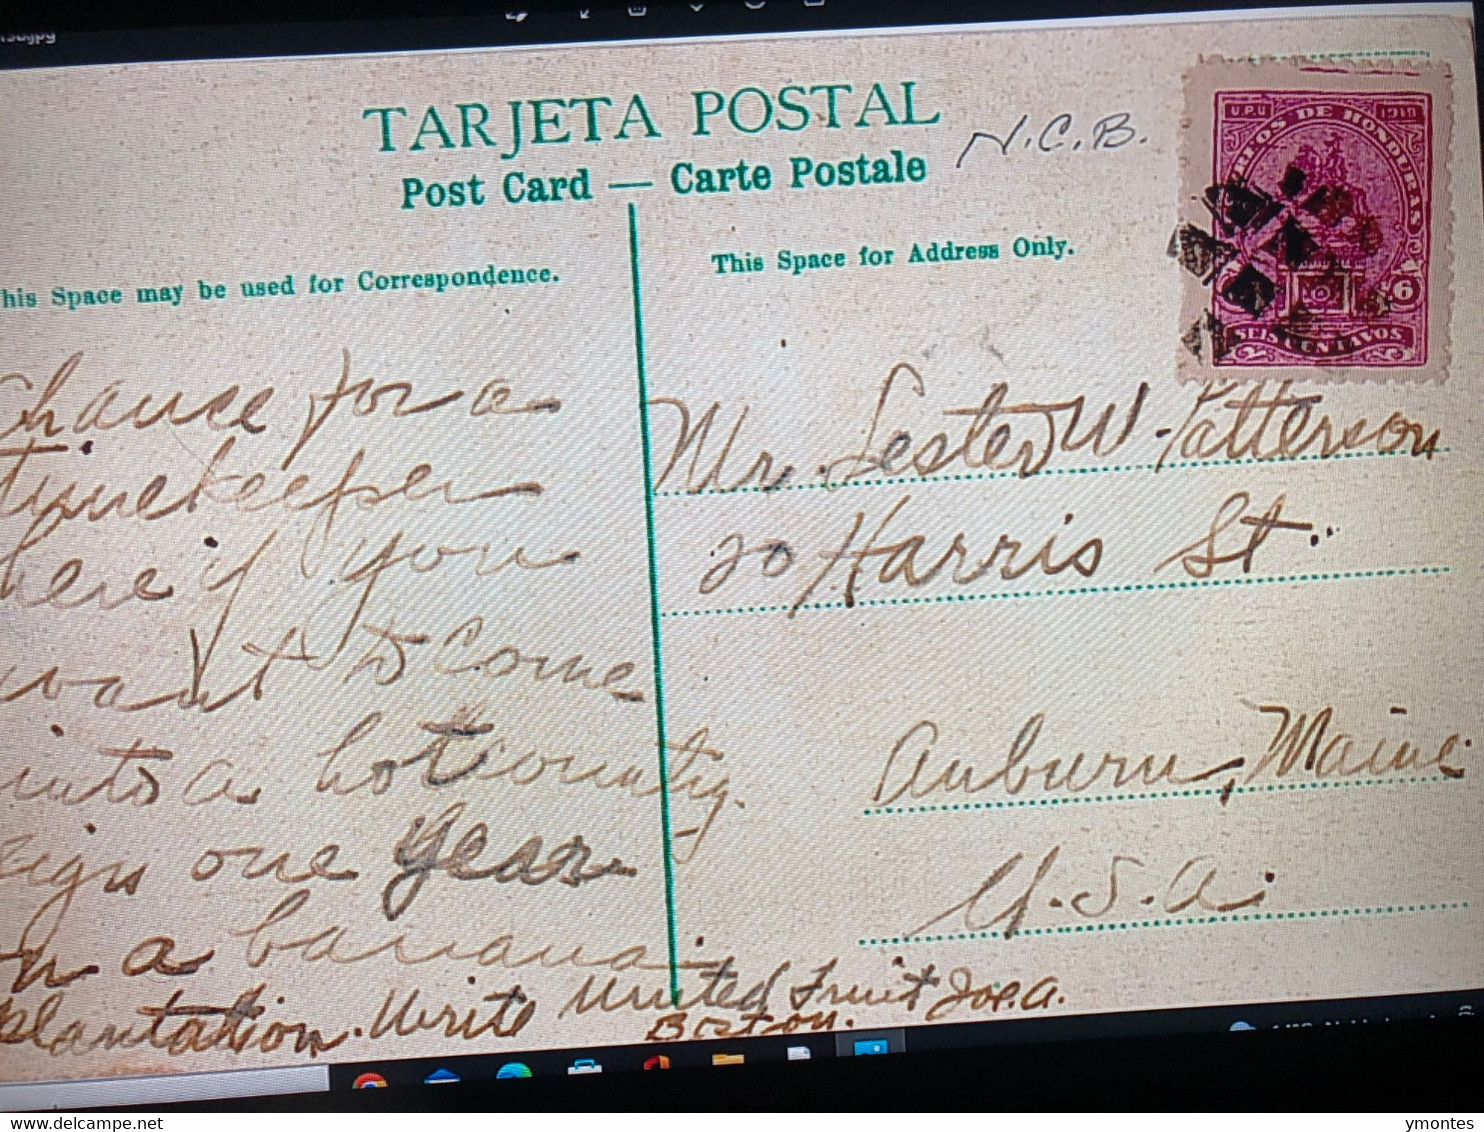 TARJETA POSTAL
Post Card — Carte Postale
N.C.B.
U.P.U. 1910
CORREOS DE HONDURAS
6
SEIS CENTAVOS
This Space may be used for Correspondence.
This Space for Address Only.
Chance for a
timekeeper
here if you
want to come
into a hot country.
sign one year
on a banana
plantation. Write United Fruit Joe. A.
Boston.
Mr. Lester W. Patterson
20 Harris St.
Auburn, Maine
U.S.A.
delcampe.net
ymontes